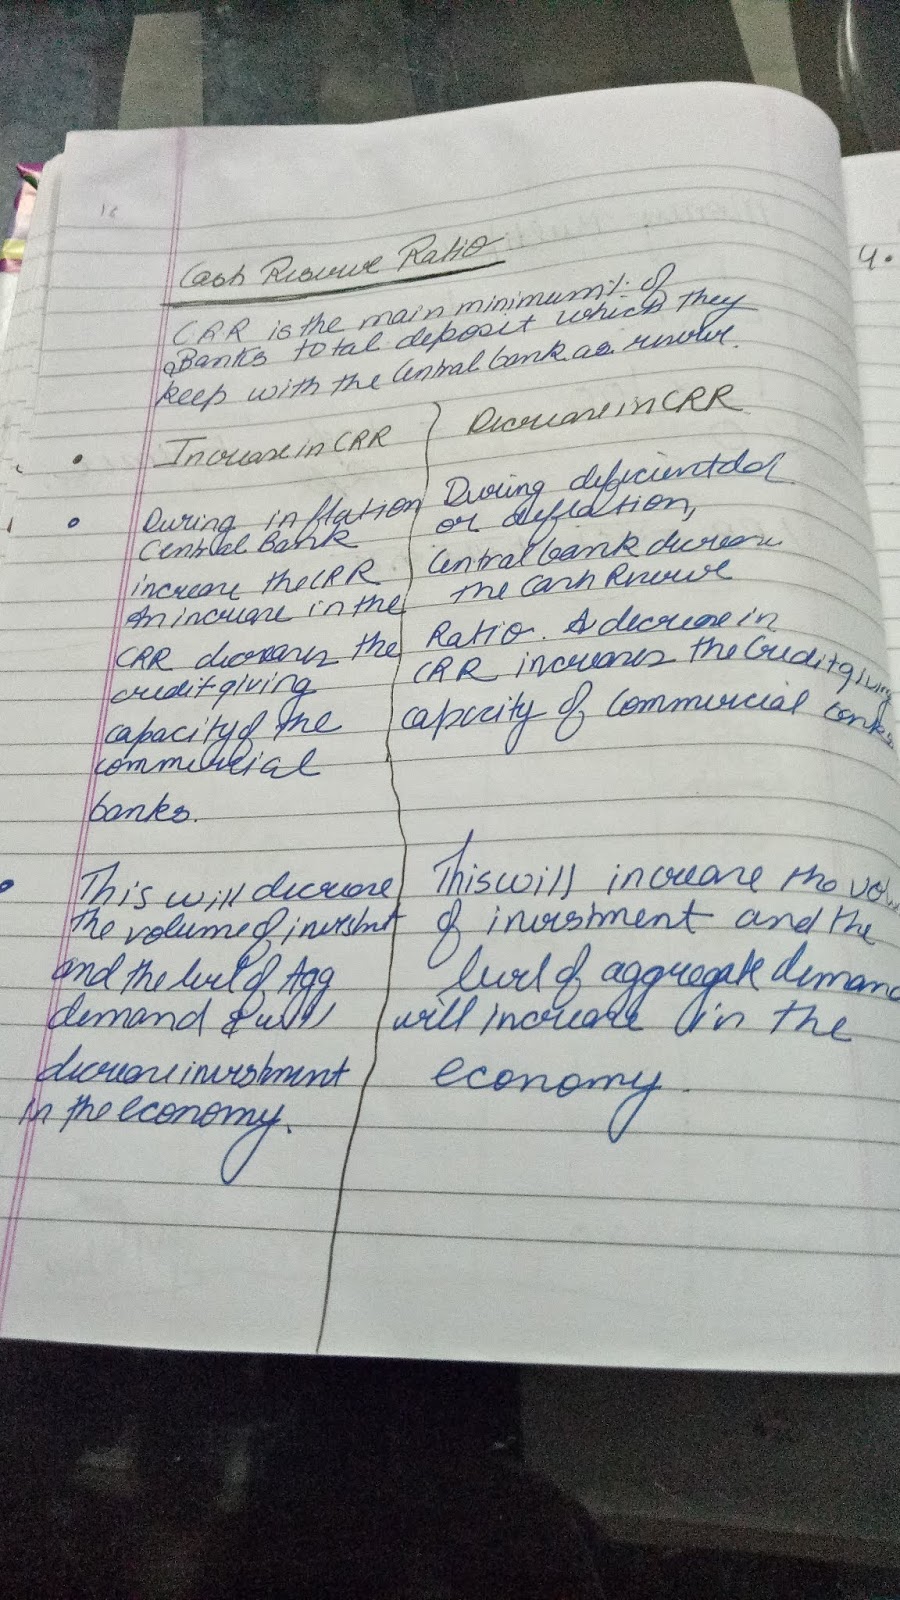 18
4.
Cash Reserve Ratio
CRR is the main minimum % of
Banks total deposit which they
keep with the Central bank as reserve.
Increase in CRR
During inflation
Central Bank
increase the CRR
An increase in the
CRR decreases the
credit giving
capacity of the
commercial
banks.
This will decrease
the volume of invstmt
and the level of Agg
demand & will
decrease investment
in the economy.
Decrease in CRR
During deficient dd
or deflation,
Central bank decrease
the Cash Reserve
Ratio. A decrease in
CRR increases the Credit giving
capacity of Commercial banks
This will increase the vol
of investment and the
level of aggregate demand
will increase in the
economy.